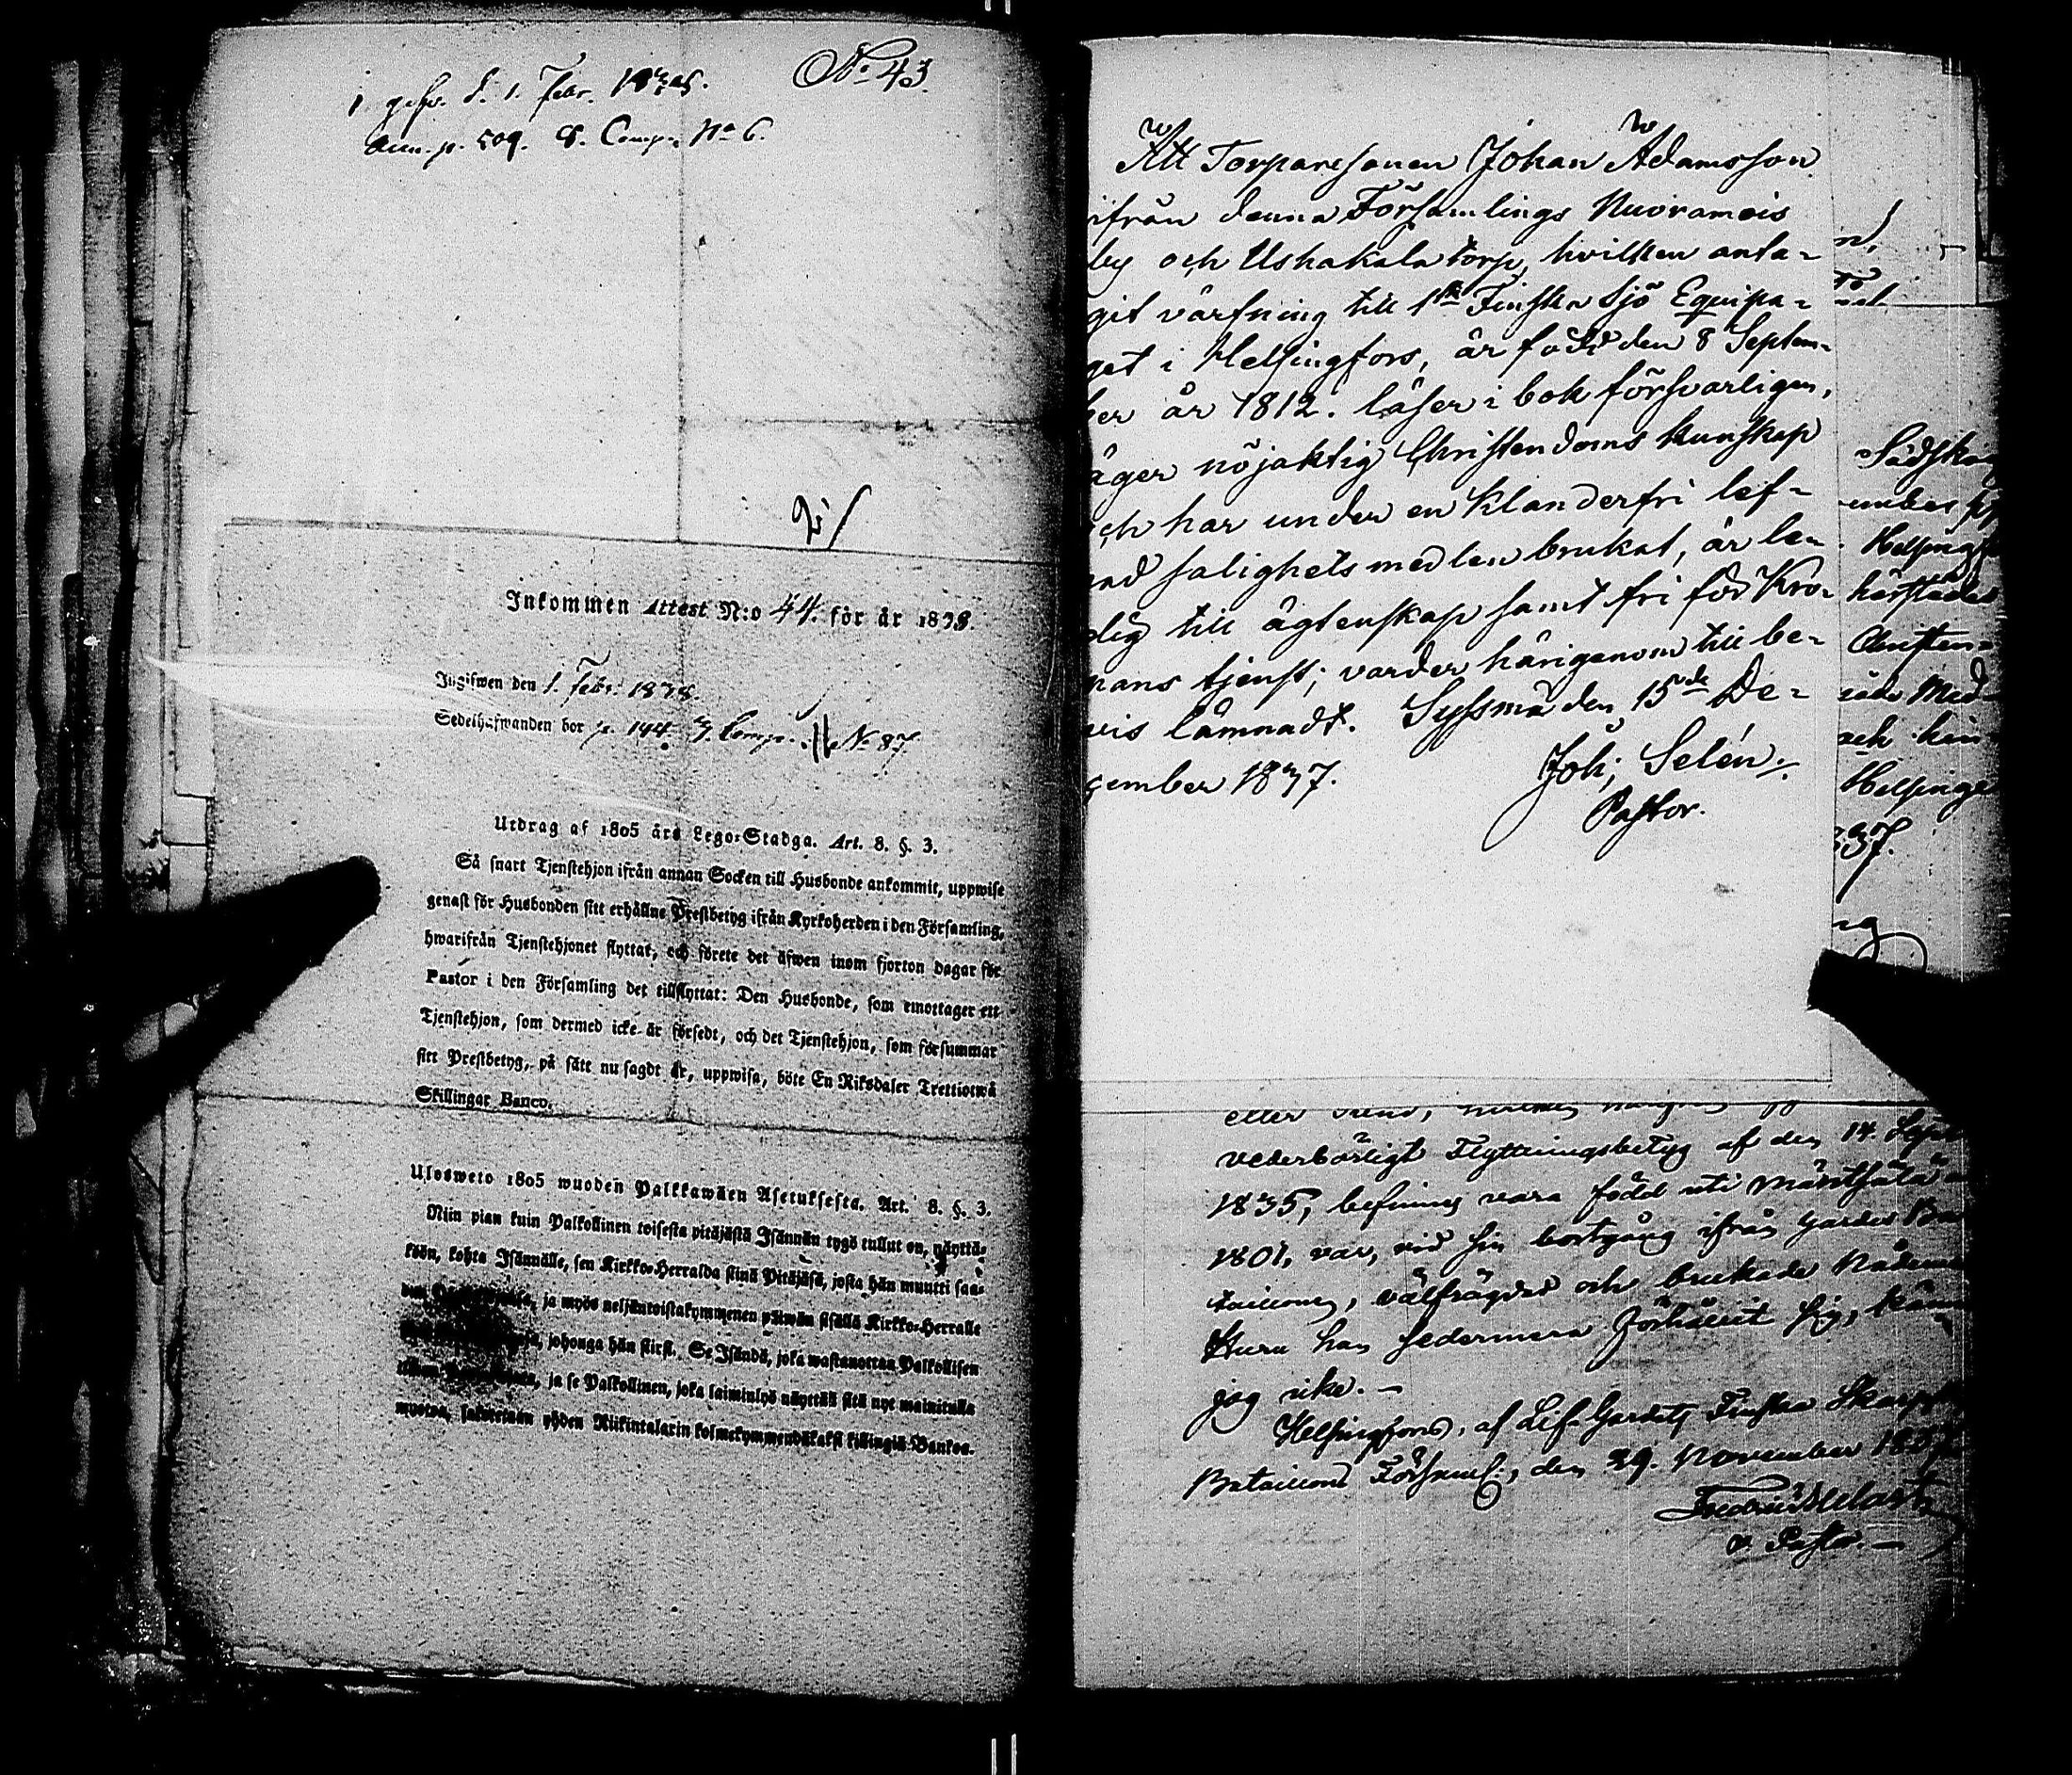 No 43
d. 1. Febr. 1838.
p. 509. 8. Comp. No 6.
2
Inkommen Attest N:o 44. för år 1838.
Ingifwen den 1. Febr. 1838.
Sedelhafwanden bor p. 144. 7. Comp. No 87
Utdrag af 1805 års Lego-Stadga. Art. 8. §. 3.
Så snart Tjenstehjon ifrån annan Socken till Husbonde ankommit, uppwise
genast för Husbonden sitt erhållne Prestbetyg ifrån Kyrkoherden i den Församling,
hwarifrån Tjenstehjonet flyttat, och förete det äfwen inom fjorton dagar för
Pastor i den Församling det tillflyttat: Den Husbonde, som emottager ett
Tjenstehjon, som dermed icke är försedt, och det Tjenstehjon, som försummar
sitt Prestbetyg, på sätt nu sagdt är, uppwisa, böte En Riksdaler Trettiotwå
Skillingar Banco.
Ulosweto 1805 wuoden Palkkawäen Asetuksesta. Art. 8. §. 3.
Niin pian kuin Palkollinen toisesta pitäjästä Isännän tygö tullut on, näyttä-
köön, kohta Isännälle, sen Kirkko-Herralda siinä Pitäjäsä, josta hän muutti saa-
ja myös neljäntoistakymmenen päiwän sisällä Kirkko-Herralle
johonga hän siirsi. Se Isändä, joka wastanottaa Palkollisen
ja se Palkollinen, joka laiminlyö näyttää sitä nyt mainitulla
muotoa, sakotetaan yhden Riikintalarin kolmekymmendäkaksi killingiä Bankoa.
Att Torparesonen Johan Adamsson
ifrån denna Församlings Nuoramois
by och Ushakala torp, hvilken anta-
git värfning till 1sta Finska Sjö Equipa-
get i Helsingfors, är född den 8 Septem-
ber år 1812. läser i bok försvarligen,
äger nöjaktig Christendoms kunskap
och har under en klanderfri lef-
nad salighets medlen brukat, är le-
dig till ägtenskap samt fri för Kro-
nans tjenst; varder härigenom till be-
vis lämnadt. Syssmä den 15de De-
cember 1837.
Joh; Selén
Pastor.
Helsingf
härstädes
Christen-
Med-
och
Helsing
837.
vederbörligt Flyttningsbetyg af den 14. Sept
1835, befinnes vara född uti Mäntsälä
1801, var, vid sin bortgång ifrån Gardes Ba
taillonen, välfrägdad och brukade Nådem
Huru han sedermera förhållit sig, kän
jag icke. —
Helsingfors, af Lif-Gardets Finska Skarpsk
Bataillons Församl:, den 29. November 1837
Fredrik
v. Pastor. —